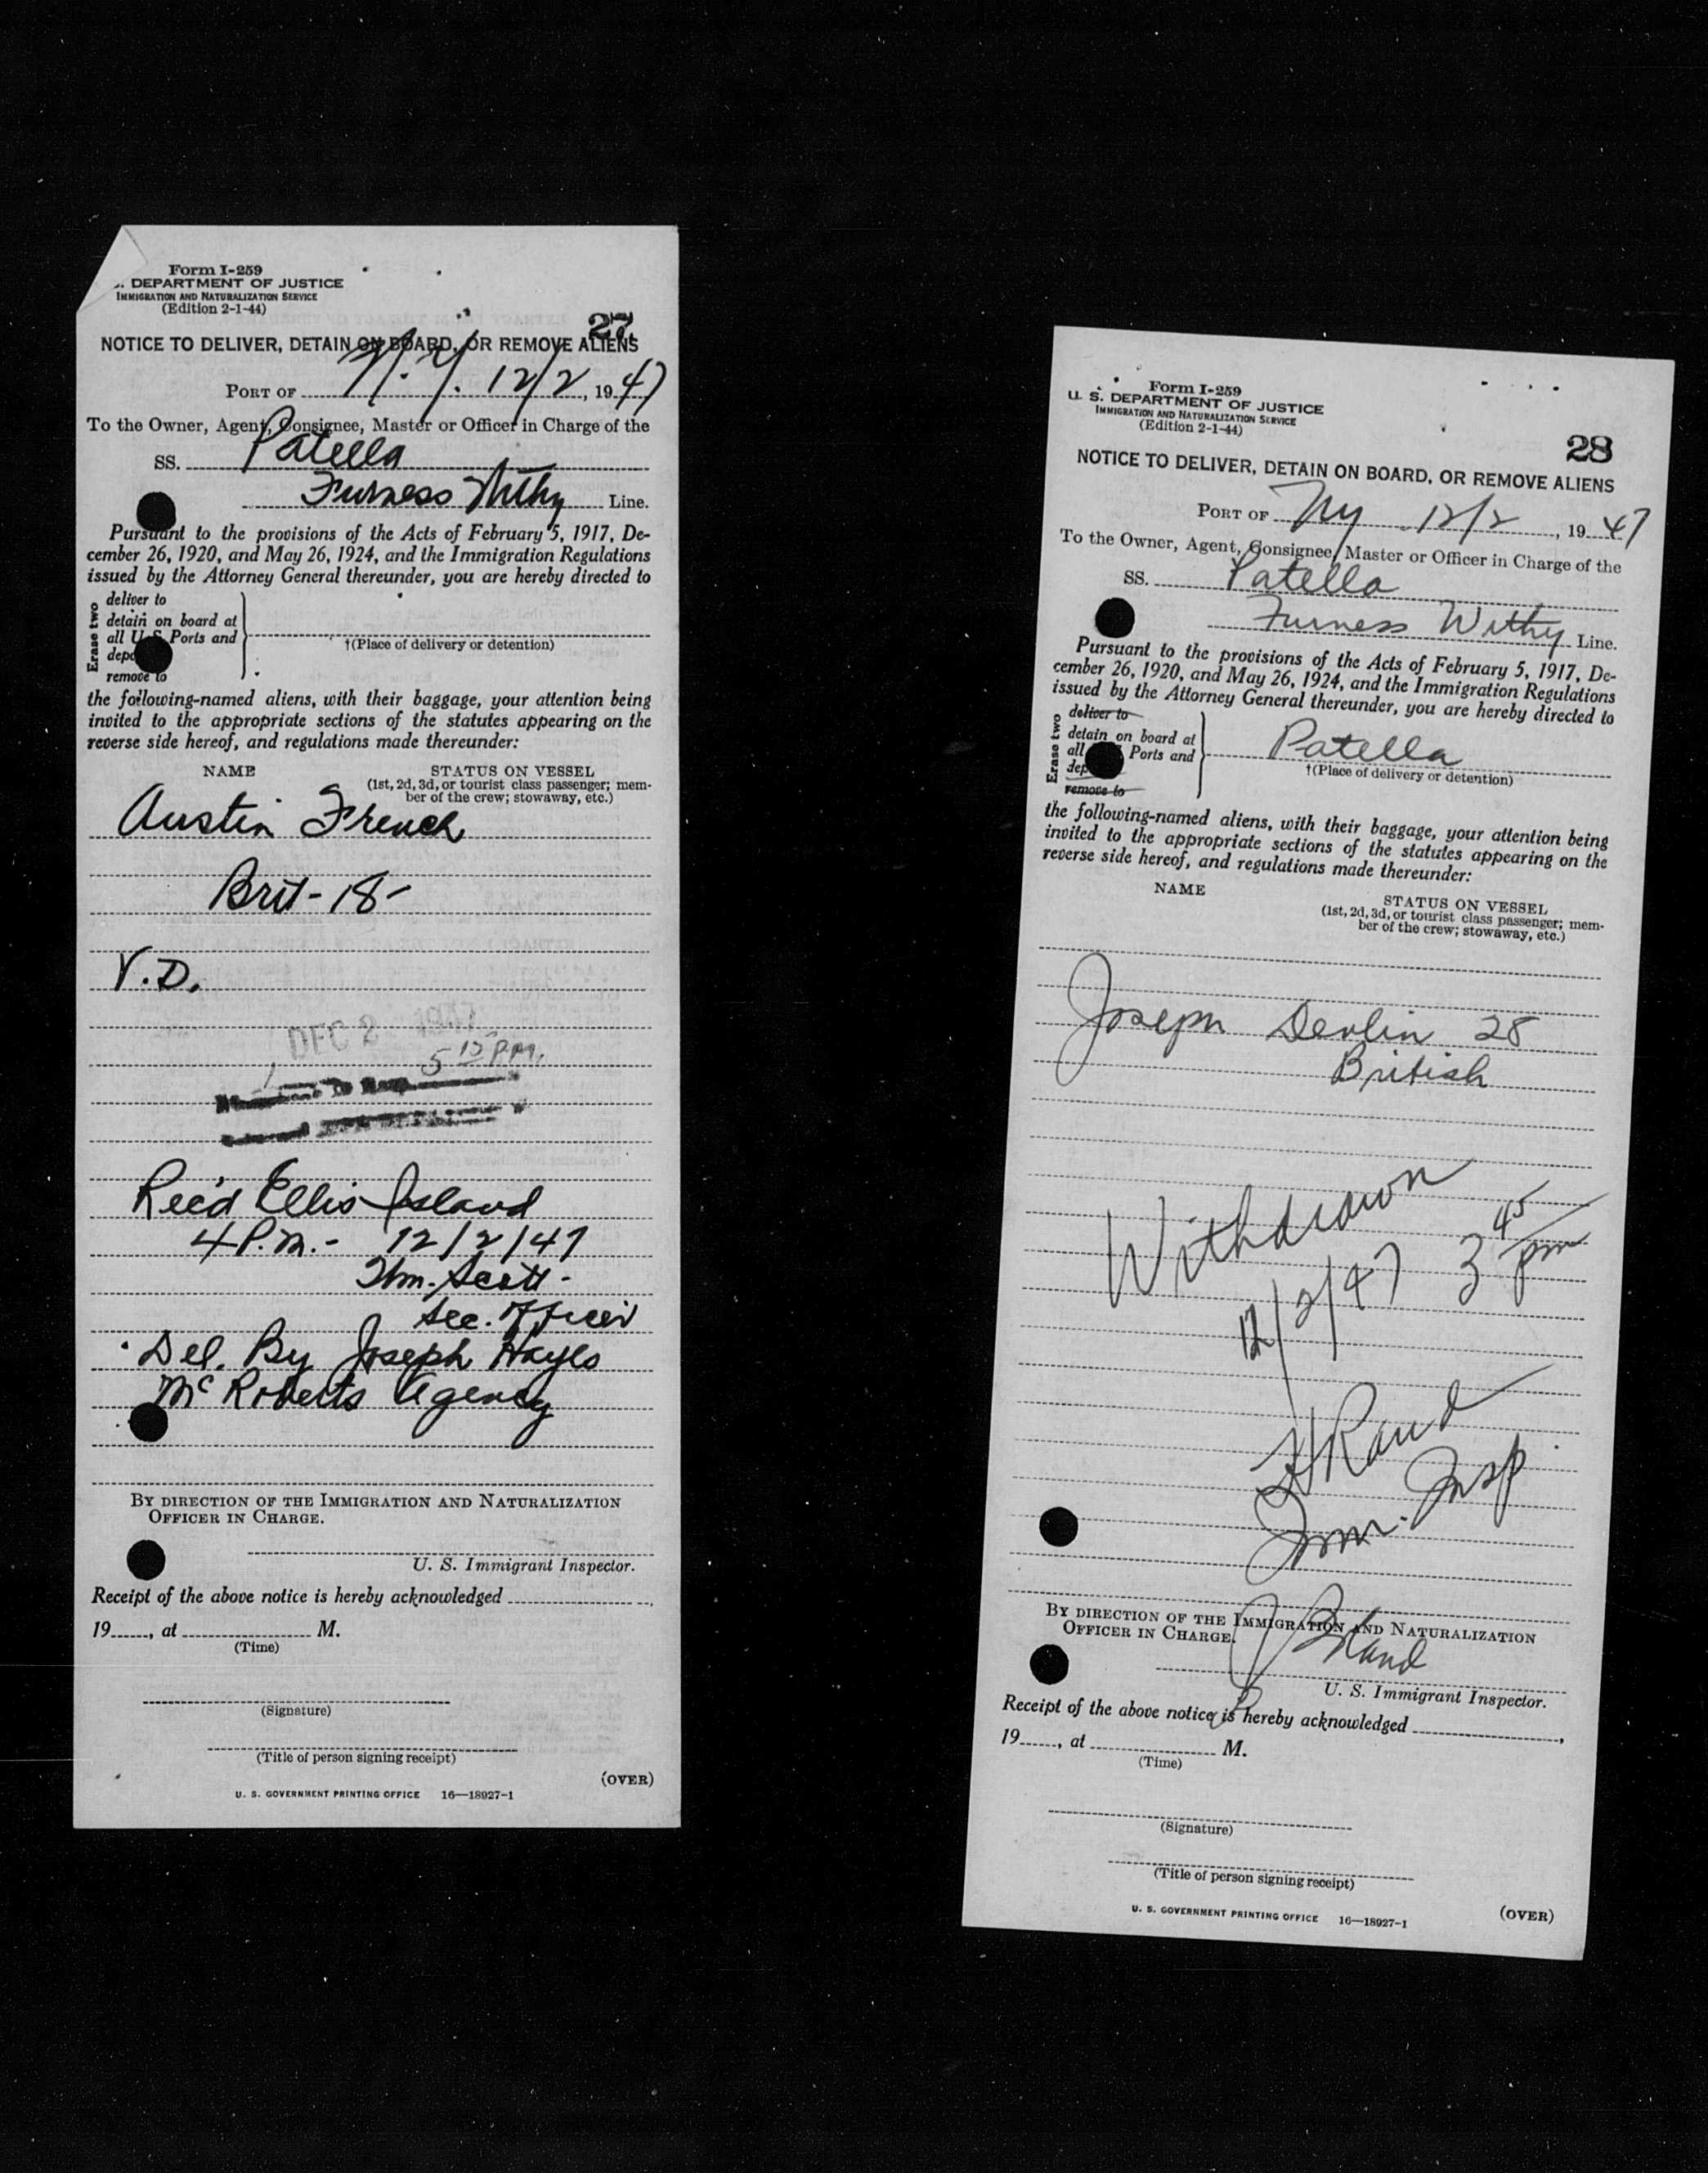 Form I-259
. DEPARTMENT OF JUSTICE
IMMIGRATION AND NATURALIZATION SERVICE
(Edition 2-1-44)
27
NOTICE TO DELIVER, DETAIN ON BOARD, OR REMOVE ALIENS
PORT OF N.Y. 12/2, 1947
To the Owner, Agent, Consignee, Master or Officer in Charge of the
SS. Patella
Furness Withy Line.
Pursuant to the provisions of the Acts of February 5, 1917, De-
cember 26, 1920, and May 26, 1924, and the Immigration Regulations
issued by the Attorney General thereunder, you are hereby directed to
Erase two
deliver to
detain on board at
all U.S. Ports and
depo
remove to
†(Place of delivery or detention)
the following-named aliens, with their baggage, your attention being
invited to the appropriate sections of the statutes appearing on the
reverse side hereof, and regulations made thereunder:
NAME STATUS ON VESSEL
(1st, 2d, 3d, or tourist class passenger; mem-
ber of the crew; stowaway, etc.)
Austin French
Brit - 18 -
V.D.
DEC 2 1947
5 15 P.M.
Rec'd Ellis Island
4 P.M. - 12/2/47
Wm. Scott -
Sec. Officer
Del. By Joseph Hayes
Mc Roberts Agency
BY DIRECTION OF THE IMMIGRATION AND NATURALIZATION
OFFICER IN CHARGE.
U. S. Immigrant Inspector.
Receipt of the above notice is hereby acknowledged
19, at M.
(Time)
(Signature)
(Title of person signing receipt)
(OVER)
U. S. GOVERNMENT PRINTING OFFICE 16—18927-1
Form I-259
U. S. DEPARTMENT OF JUSTICE
IMMIGRATION AND NATURALIZATION SERVICE
(Edition 2-1-44)
28
NOTICE TO DELIVER, DETAIN ON BOARD, OR REMOVE ALIENS
PORT OF Ny 12/2, 1947
To the Owner, Agent, Consignee, Master or Officer in Charge of the
SS. Patella
Furness Withy Line.
Pursuant to the provisions of the Acts of February 5, 1917, De-
cember 26, 1920, and May 26, 1924, and the Immigration Regulations
issued by the Attorney General thereunder, you are hereby directed to
Erase two
deliver to
detain on board at
all Ports and
dep
remove to
Patella
†(Place of delivery or detention)
the following-named aliens, with their baggage, your attention being
invited to the appropriate sections of the statutes appearing on the
reverse side hereof, and regulations made thereunder:
NAME
STATUS ON VESSEL
(1st, 2d, 3d, or tourist class passenger; mem-
ber of the crew; stowaway, etc.)
Joseph Devlin 28
British
Withdrawn
12/2/47 3 45 pm
Rand
Imm. Insp
BY DIRECTION OF THE IMMIGRATION AND NATURALIZATION
OFFICER IN CHARGE.
Rand
U. S. Immigrant Inspector.
Receipt of the above notice is hereby acknowledged
19, at M.
(Time)
(Signature)
(Title of person signing receipt)
U. S. GOVERNMENT PRINTING OFFICE 16—18927-1
(OVER)